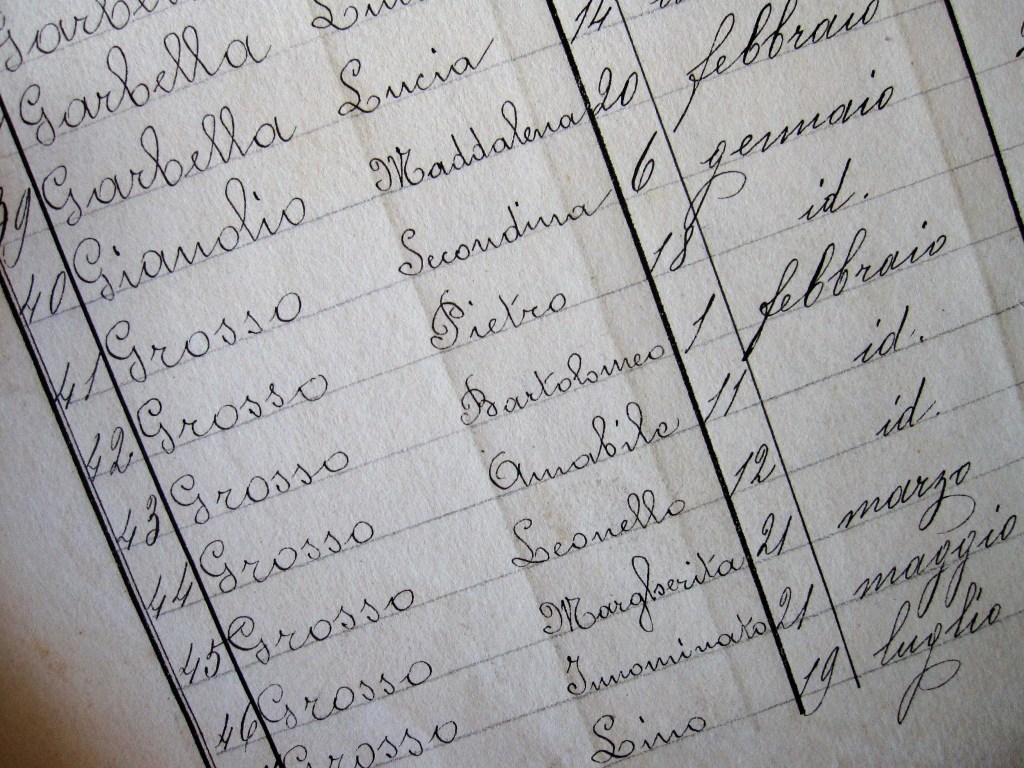 Garbella
39 Garbella Lucia 14
40 Gianolio Maddalena 20 febbraio
41 Grosso Secondina 6 gennaio
42 Grosso Pietro 18 id.
43 Grosso Bartolomeo 1 febbraio
44 Grosso Amabile 11 id.
45 Grosso Leonello 12 id.
46 Grosso Margherita 21 marzo
Grosso Innominato 21 maggio
Lino 19 luglio